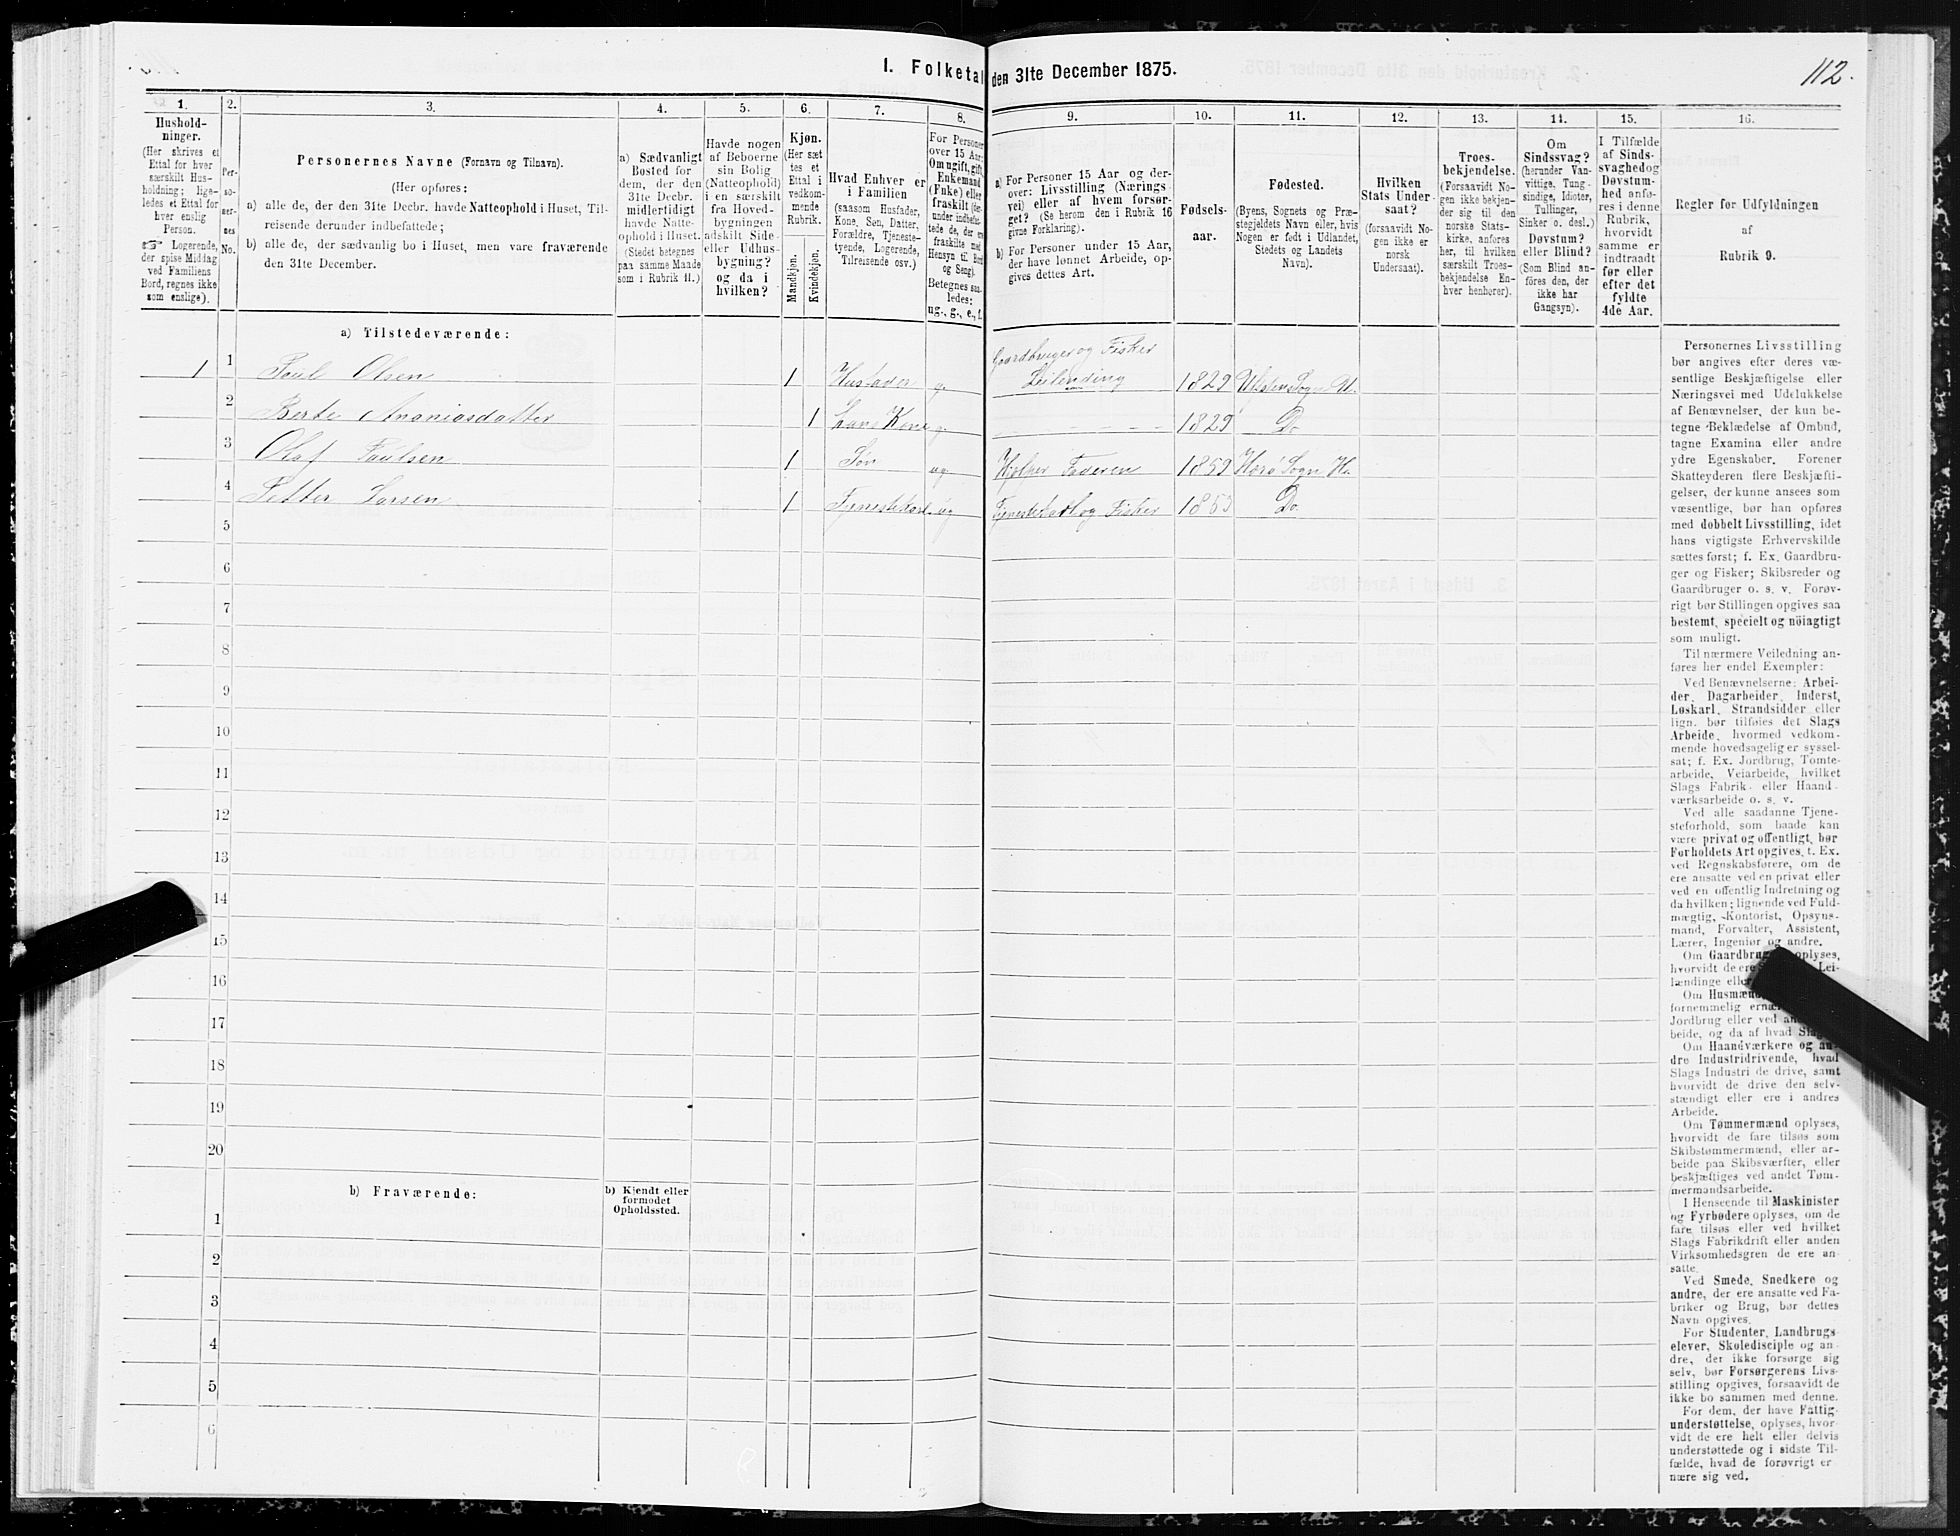 I. Folketal den 31te December 1875.
112.
1. 2. 3. 4. 5. 6. 7. 8. 9. 10. 11. 12. 13. 14. 15. 16.
Hushold-
ninger.
(Her skrives et
Ettal for hver
særskilt Hus-
holdning; lige-
ledes et Ettal for
hver enslig
Person.
☞ Logerende,
der spise Middag
ved Familiens
Bord, regnes ikke
som enslige).
Per-
so-
ner-
nes
No.
Personernes Navne (Fornavn og Tilnavn).
(Her opføres:
a) alle de, der den 31te Decbr. havde Natteophold i Huset, Til-
reisende derunder indbefattede;
b) alle de, der sædvanlig bo i Huset, men vare fraværende
den 31te December.
a) Sædvanligt
Bosted for
dem, der den
31te Decbr.
midlertidigt
havde Natte-
ophold i Huset.
(Stedet betegnes
paa samme Maade
som i Rubrik 11.)
Havde nogen
af Beboerne
sin Bolig
(Natteophold)
i en særskilt
fra Hoved-
bygningen
adskilt Side-
eller Udhus-
bygning?
og da i
hvilken?
Kjøn.
(Her sæt-
tes et
Ettal i
vedkom-
mende
Rubrik.
Mandkjøn.
Kvindekjøn.
Hvad Enhver er
i Familien
(saasom Husfader,
Kone, Søn, Datter,
Forældre, Tjeneste-
tyende, Logerende,
Tilreisende osv.)
For Personer
over 15 Aar:
Om ugift, gift,
Enkemand
(Enke) eller
fraskilt (her-
under indbefat-
tede de, der ere
fraskilte med
Hensyn til Bord
og Seng).
Betegnes saa-
ledes:
ug., g., e., f.
a) For Personer 15 Aar og der-
over: Livsstilling (Nærings-
vei) eller af hvem forsør-
get? (Se herom den i Rubrik 16
givne Forklaring).
b) For Personer under 15 Aar,
der have lønnet Arbeide, op-
gives dettes Art.
Fødsels-
aar.
Fødested.
(Byens, Sognets og Præ-
stegjeldets Navn eller, hvis
Nogen er født i Udlandet,
Stedets og Landets
Navn).
Hvilken
Stats Under-
saat?
(forsaavidt No-
gen ikke er
norsk
Undersaat).
Troes-
bekjendelse.
(Forsaavidt No-
gen ikke bekjen-
der sig til den
norske Stats-
kirke, anføres
her, til hvilken
særskilt Troes-
bekjendelse En-
hver henhører).
Om
Sindssvag?
(herunder Van-
vittige, Tung-
sindige, Idioter,
Tullinger,
Sinker o. desl.)
Døvstum?
eller Blind?
(Som Blind an-
føres den, der
ikke har
Gangsyn).
I Tilfælde
af Sinds-
svaghed og
Døvstum-
hed anfø-
res i denne
Rubrik,
hvorvidt
samme er
indtraadt
før eller
efter det
fyldte
4de Aar.
Regler for Udfyldningen
af
Rubrik 9.
a) Tilstedeværende:
1 1 Poul Olsen 1 Husfader g. Gaardbruger og Fisker
Leilending 1829 Ulstens Sogn U.
2 Berte Ananiasdatter 1 hans Kone g. 1829 Do
3 Olaf Paulsen 1 Søn ug Hjelper Faderen 1859 Herø Sogn He.
4 Petter Larsen 1 Tjenestekarl ug Tjenestekarl og Fisker 1853 Do.
5
6
7
8
9
10
11
12
13
14
15
16
17
18
19
20
b) Fraværende:
b) Kjendt eller
formodet
Opholdssted.
1
2
3
4
5
6
Personernes Livsstilling
bør angives efter deres væ-
sentlige Beskjæftigelse eller
Næringsvei med Udelukkelse
af Benævnelser, der kun be-
tegne Beklædelse af Ombud,
tagne Examina eller andre
ydre Egenskaber. Forener
Skatteyderen flere Beskjæfti-
gelser, der kunne ansees som
væsentlige, bør han opføres
med dobbelt Livsstilling, idet
hans vigtigste Erhvervskilde
sættes først; f. Ex. Gaardbru-
ger og Fisker; Skibsreder og
Gaardbruger o. s. v. Forøv-
rigt bør Stillingen opgives saa
bestemt, specielt og nöiagtigt
som muligt.
Til nærmere Veiledning an-
føres her endel Exempler:
Ved Benævnelserne: Arbei-
der, Dagarbeider, Inderst,
Løskarl, Strandsidder eller
lign. bør tilføies det Slags
Arbeide, hvormed vedkom-
mende hovedsagelig er syssel-
sat; f. Ex. Jordbrug, Tomte-
arbeide, Veiarbeide, hvilket
Slags Fabrik- eller Haand-
værksarbeide o. s. v.
Ved alle saadanne Tjene-
steforhold, som baade kan
være privat og offentligt, bør
Forholdets Art opgives, t. Ex.
ved Regnskabsførere, om de
ere ansatte ved en privat eller
ved en offentlig Indretning og
da hvilken; lignende ved Fuld-
mægtig, Kontorist, Opsyns-
mand, Forvalter, Assistent,
Lærer, Ingeniør og andre.
Om Gaardbrug oplyses,
hvorvidt de ere Lei-
lændinge elle
Om Husmænd
fornemmelig ernæ
Jordbrug eller ved an
beide, og da af hvad Slag
Om Haandværkere og an-
dre Industridrivende, hvad
Slags Industri de drive, samt
hvorvidt de drive den selv-
stændigt eller ere i andres
Arbeide.
Om Tømmermænd oplyses,
hvorvidt de fare tilsøs som
Skibstømmermænd, eller ar-
beide paa Skibsværfter, eller
beskjæftiges ved andet Tøm-
mermandsarbeide.
I Henseende til Maskinister
og Fyrbødere oplyses, om de
fare tilsøs eller ved hvilket
Slags Fabrikdrift eller anden
Virksomhedsgren de ere an-
satte.
Ved Smede, Snedkere og
andre, der ere ansatte ved Fa-
briker og Brug, bør dettes
Navn opgives.
For Studenter, Landbrugs-
elever, Skoledisciple og an-
dre, der ikke forsørge sig
selv, bør Forsørgerens Livs-
stilling opgives, forsaavidt de
ikke bo sammen med denne.
For dem, der have Fattig-
understøttelse, oplyses, hvor-
vidt de ere helt eller delvis
understøttede og i sidste Til-
fælde, hvad de forøvrigt er-
nære sig ved.